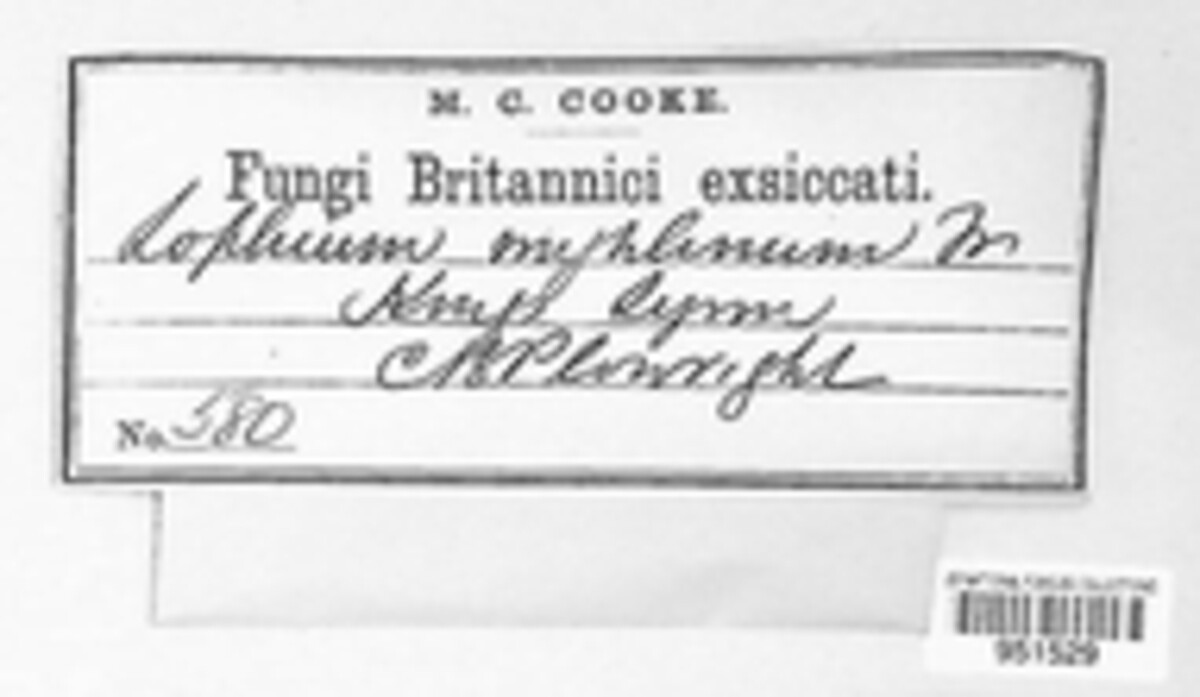 M. C. COOKE.
Fungi Britannici exsiccati.
Lophium mytilinum Fr
Kings Lynn
C B Plowright
No. 580
951529